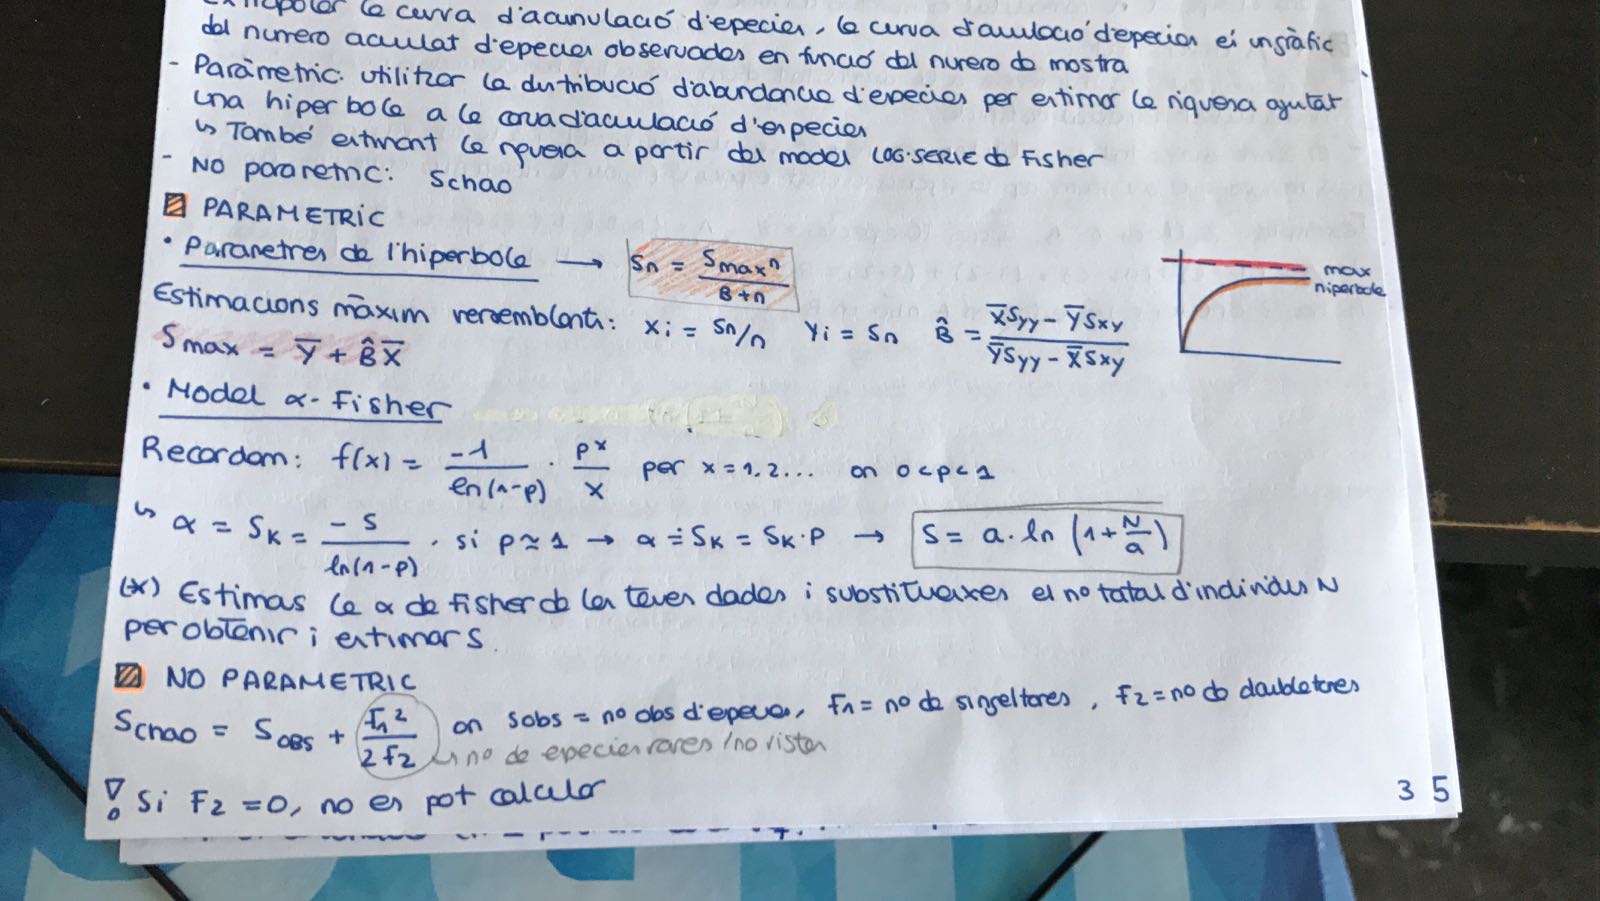 Extrapolar la curva d'acumulació d'epecies, la curva d'aulació d'epecies és un gràfic
del numero aculat d'epecies observades en funció del numero de mostra
- Paràmetric: utilitzar la distribució d'abundancia d'especies per estimar la riquesa ajutat
una hiperbole a la corva d'aculació d'especies
↳ També estimant la riquesa a partir del model LOG-SERIE de Fisher
- NO parametric: Schao
PARAMETRIC
• Parametres de l'hiperbole → Sn = Smax n / B+n
max
hiperbole
Estimacions màxim versemblants: Xi = Sn/n Yi = Sn B̂ = X̄Syy - ȲSxy / ȲSyy - X̄Sxy
Smax = Ȳ + B̂X̄
• Model α-Fisher
Recordem: f(x) = -1 / ln(1-p) · p^x / x per x = 1, 2... on 0<p<1
↳ α = SK = -S / ln(1-p) . si p≈1 → α ≐ SK = SK·P → S = a·ln (1+N/a)
(*) Estimas la α de fisher de les teves dades i substitueixes el nº total d'individus N
per obtenir i estimar S.
NO PARAMETRIC
Schao = SOBS + F1² / 2F2 on sobs = nº obs d'epecies, F1 = nº de singeltones, F2 = nº de doubletones
↳ nº de especies rares / no vistes
! Si F2 = 0, no es pot calcular
35